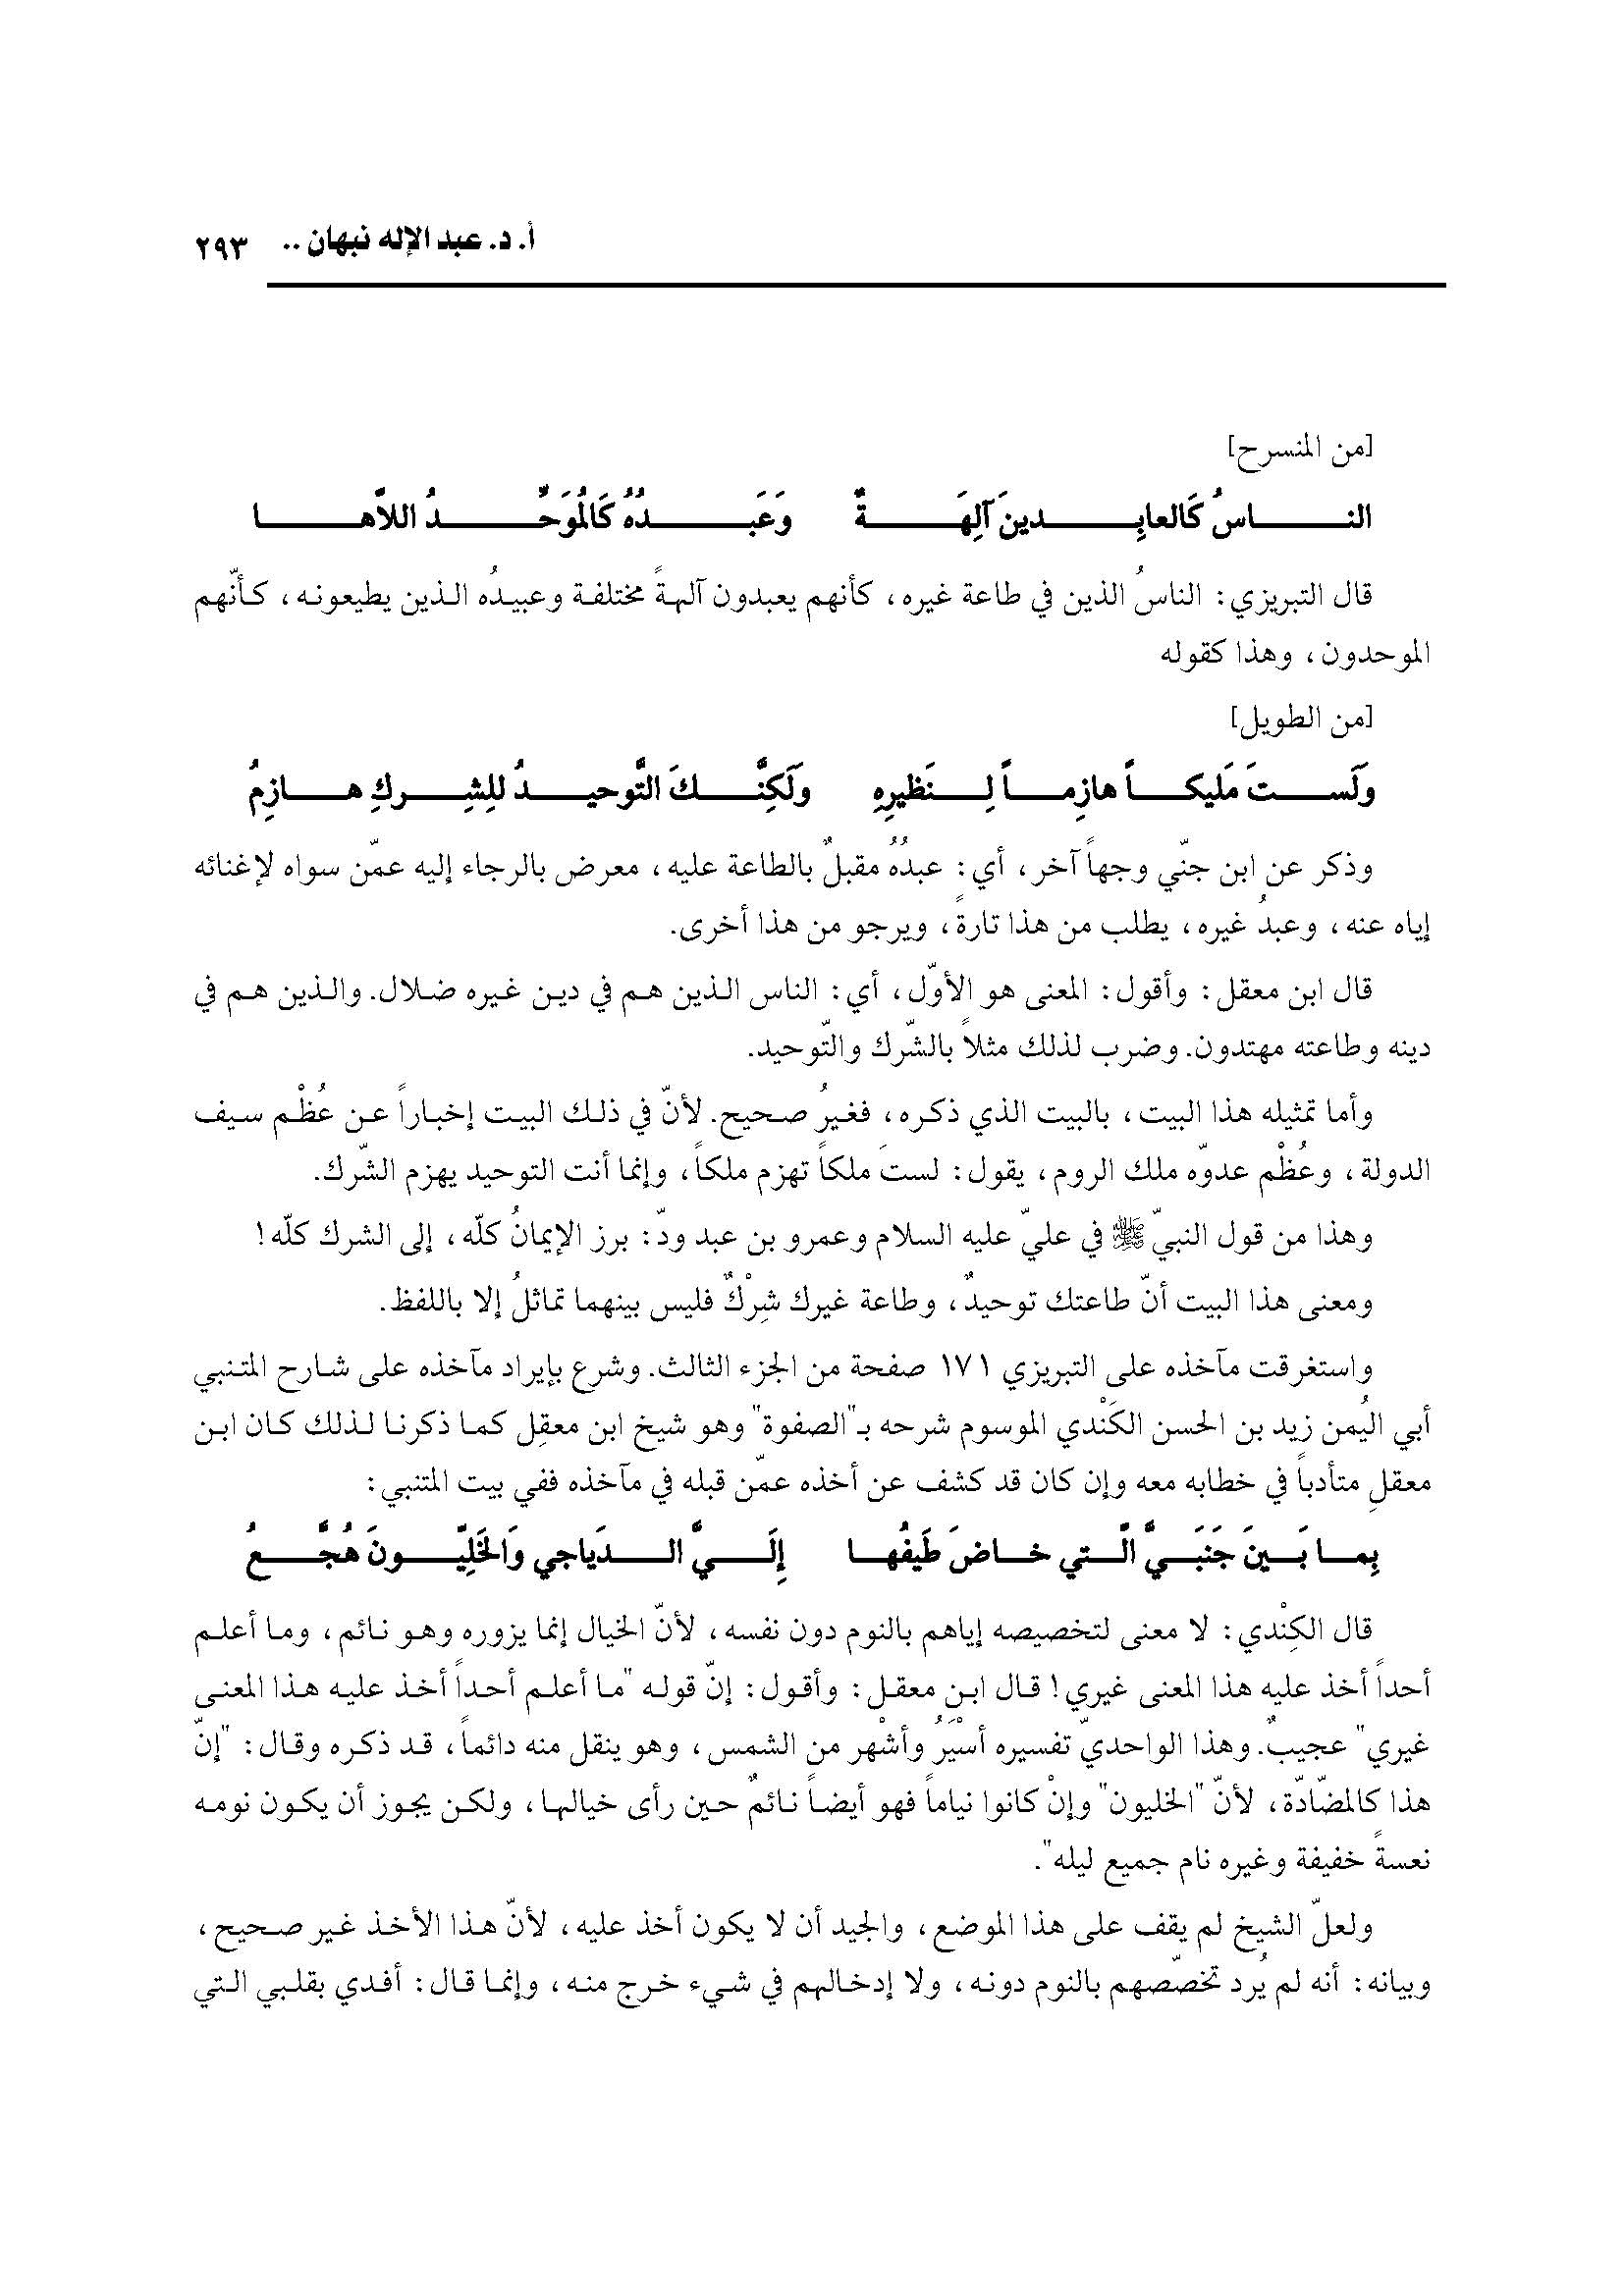 أ. د. عبد الإله نبهان .. ٢٩٣
[من المنسرح]
الناسُ كَالعابِدينَ آلِهَةً وَعَبدُهُ كَالمُوَحِّدُ اللاَّها
قال التبريزي: الناسُ الذين في طاعة غيره، كأنهم يعبدون آلهةً مختلفة وعبيدُه الذين يطيعونه، كأنّهم
الموحدون، وهذا كقوله
[من الطويل]
وَلَستَ مَليكاً هازِماً لِنَظيرِهِ ولَكِنَّكَ التَّوحيدُ للِشِركِ هازِمُ
وذكر عن ابن جنّي وجهاً آخر، أي: عبدُهُ مقبلٌ بالطاعة عليه، معرض بالرجاء إليه عمّن سواه لإغنائه
إياه عنه، وعبدُ غيره، يطلب من هذا تارةً، ويرجو من هذا أخرى.
قال ابن معقل: وأقول: المعنى هو الأوّل، أي: الناس الذين هم في دين غيره ضلال. والذين هم في
دينه وطاعته مهتدون. وضرب لذلك مثلاً بالشّرك والتّوحيد.
وأما تمثيله هذا البيت، بالبيت الذي ذكره، فغيرُ صحيح. لأنّ في ذلك البيت إخباراً عن عُظْم سيف
الدولة، وعُظْم عدوّه ملك الروم، يقول: لستَ ملكاً تهزم ملكاً، وإنما أنت التوحيد يهزم الشّرك.
وهذا من قول النبيّ ﷺ في عليّ عليه السلام وعمرو بن عبد ودّ: برز الإيمانُ كلّه، إلى الشرك كلّه!
ومعنى هذا البيت أنّ طاعتك توحيدٌ، وطاعة غيرك شِرْكٌ فليس بينهما تماثلُ إلا باللفظ.
واستغرقت مآخذه على التبريزي ١٧١ صفحة من الجزء الثالث. وشرع بإيراد مآخذه على شارح المتنبي
أبي اليُمن زيد بن الحسن الكَنْدي الموسوم شرحه بـ"الصفوة" وهو شيخ ابن معقِل كما ذكرنا لذلك كان ابن
معقلِ متأدباً في خطابه معه وإن كان قد كشف عن أخذه عمّن قبله في مآخذه ففي بيت المتنبي:
بِما بَينَ جَنَبَيَّ الَّتي خاضَ طَيفُها إِلَيَّ الدَياجي وَالخَلِيّونَ هُجَّعُ
قال الكِنْدي: لا معنى لتخصيصه إياهم بالنوم دون نفسه، لأنّ الخيال إنما يزوره وهو نائم، وما أعلم
أحداً أخذ عليه هذا المعنى غيري! قال ابن معقل: وأقول: إنّ قوله "ما أعلم أحداً أخذ عليه هذا المعنى
غيري" عجيبٌ. وهذا الواحديّ تفسيره أسْيَرُ وأشْهر من الشمس، وهو ينقل منه دائماً، قد ذكره وقال: "إنّ
هذا كالمضّادّة، لأنّ "الخليون" وإنْ كانوا نياماً فهو أيضاً نائمٌ حين رأى خيالها، ولكن يجوز أن يكون نومه
نعسةً خفيفة وغيره نام جميع ليله".
ولعلّ الشيخ لم يقف على هذا الموضع، والجيد أن لا يكون أخذ عليه، لأنّ هذا الأخذ غير صحيح،
وبيانه: أنه لم يُرد تخصّصهم بالنوم دونه، ولا إدخالهم في شيء خرج منه، وإنما قال: أفدي بقلبي التي